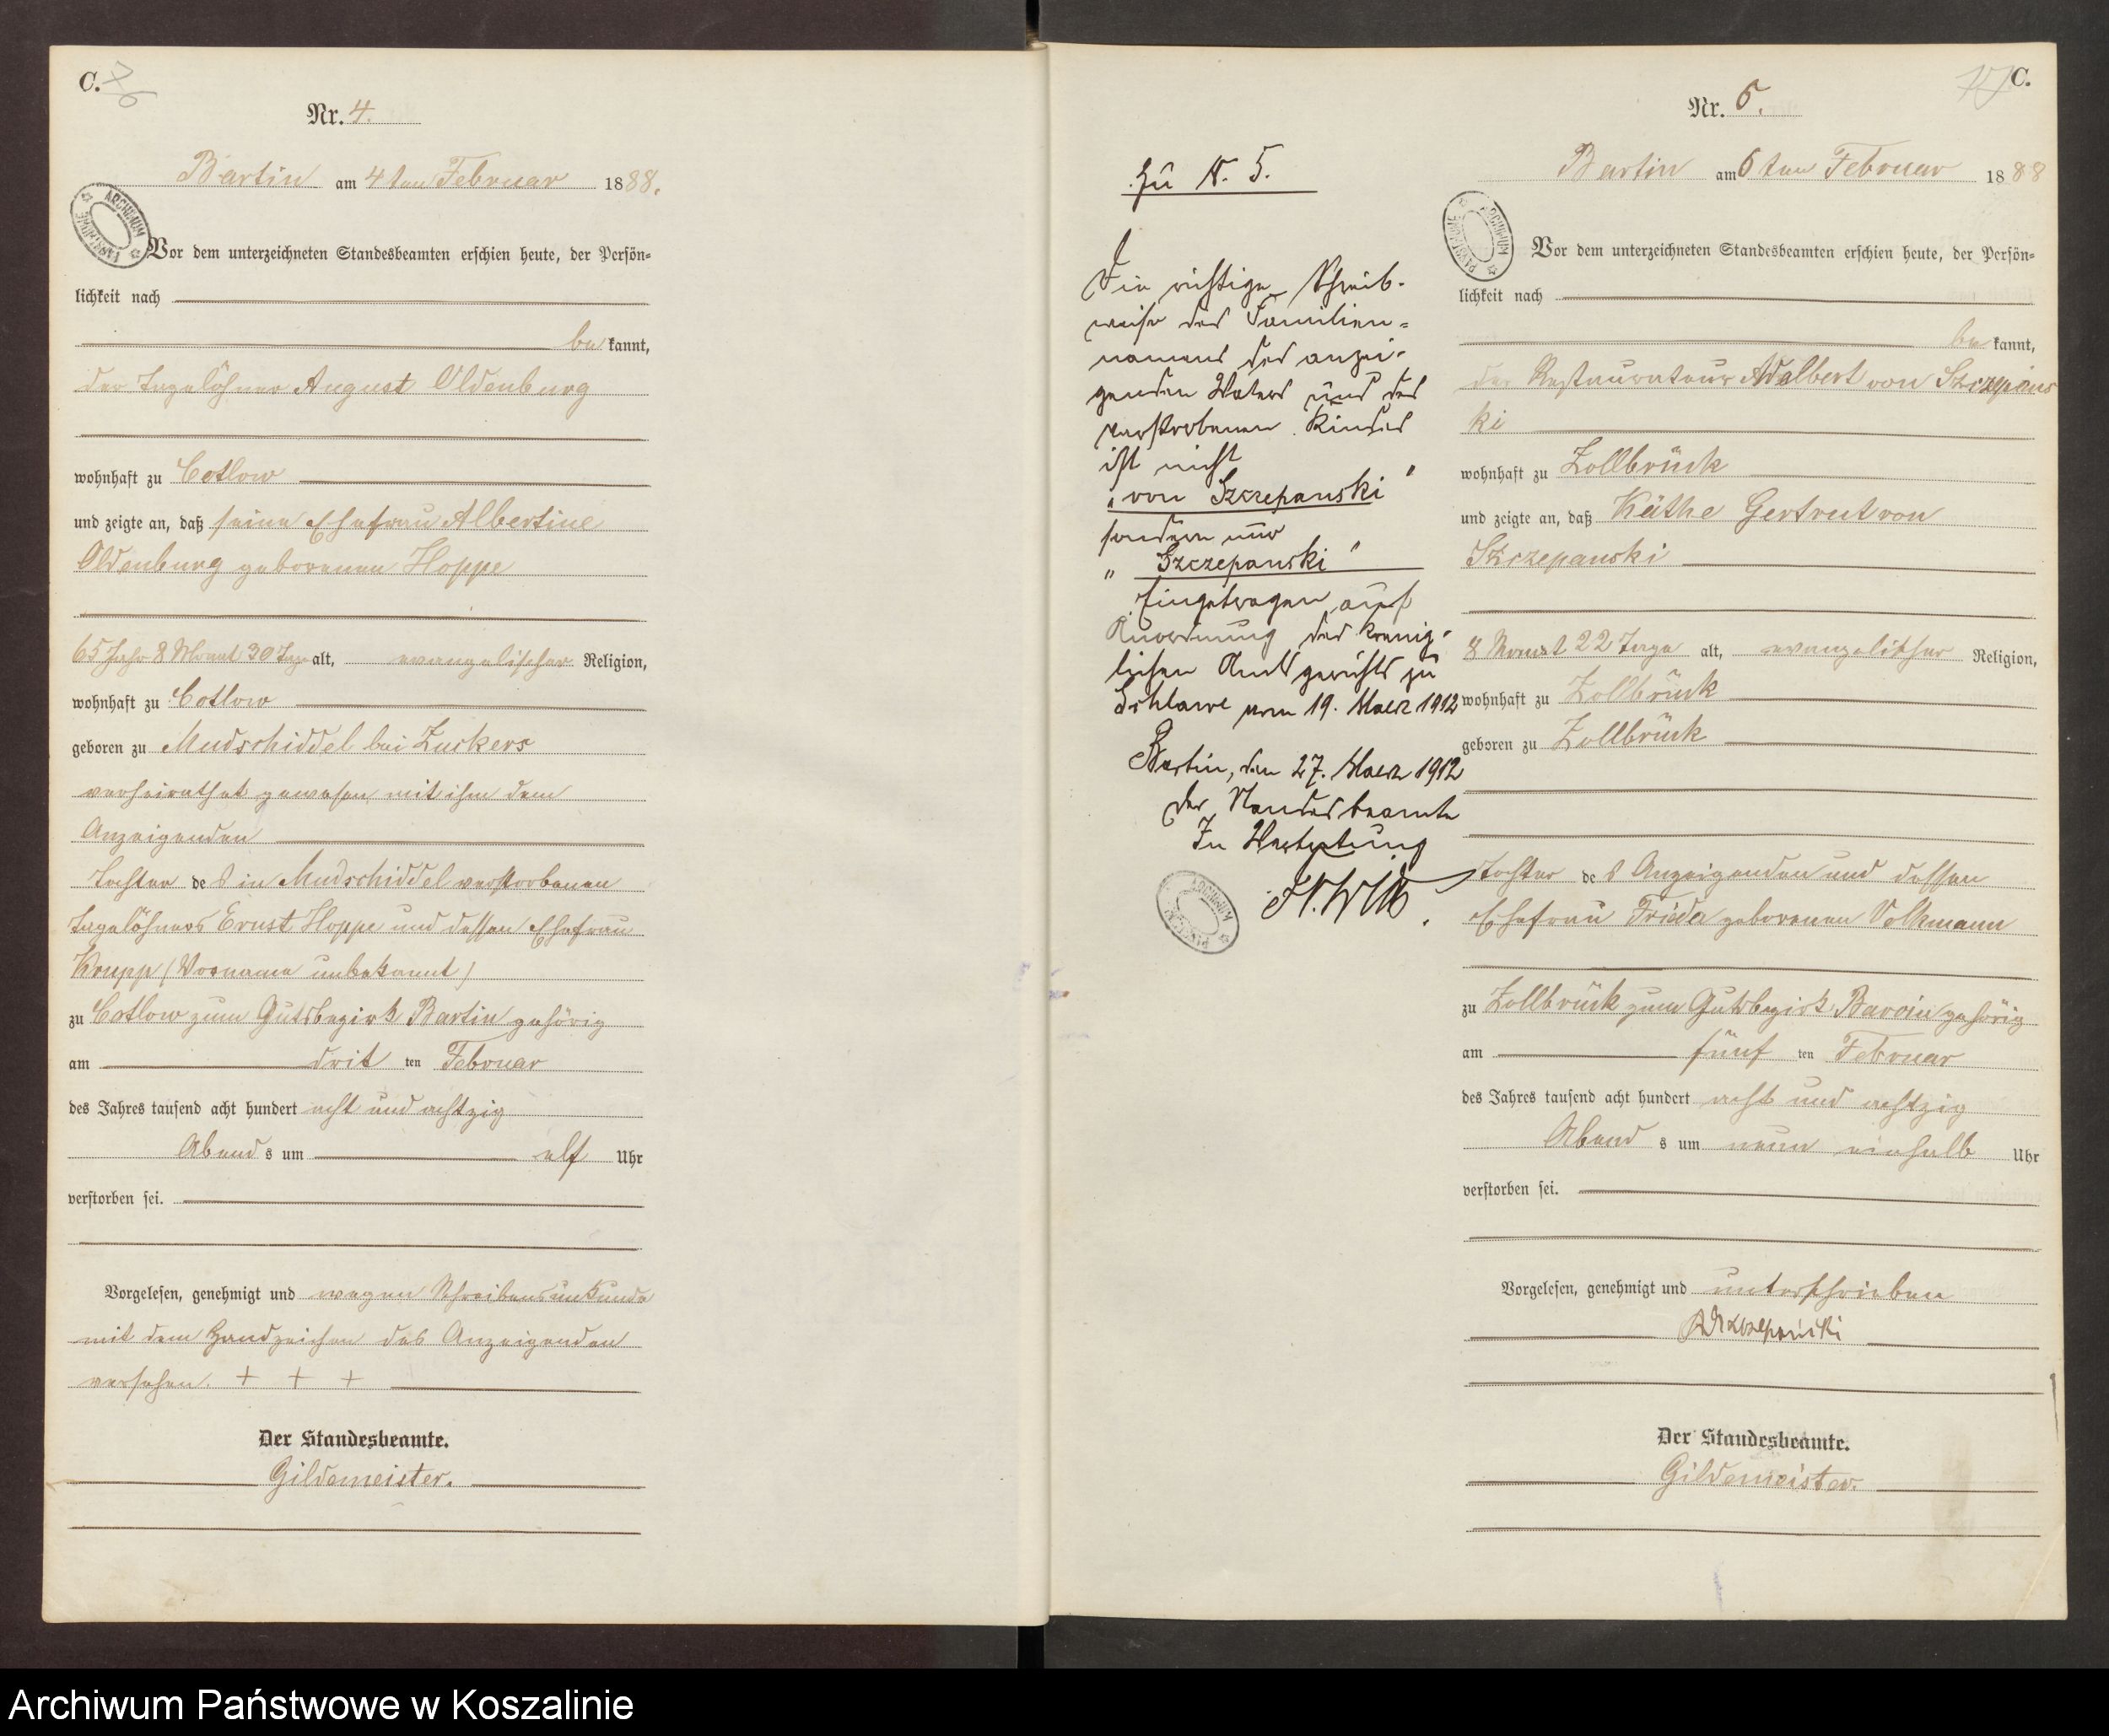 C.
Nr. 4.
Bartin am 4 ten Februar 1888.
Vor dem unterzeichneten Standesbeamten erschien heute, der Persön=
lichkeit nach
be kannt,
der Tagelöhner August Oldenburg
wohnhaft zu Cotlow
und zeigte an, daß seine Ehefrau Albertine
Oldenburg geborenen Hoppe
65 Jahr 8 Monat 30 Tage alt, evangelischer Religion,
wohnhaft zu Cotlow
geboren zu Mudschiddel bei Zuckers
verheirathet gewesen mit ihm dem
Anzeigenden
Tochter des in Mudschiddel verstorbenen
Tagelöhners Ernst Hoppe und dessen Ehefrau
Krupp (Vorname unbekannt)
zu Cotlow zum Gutsbezirk Bartin gehörig
am drit ten Februar
des Jahres tausend acht hundert acht und achtzig
Abend s um elf Uhr
verstorben sei.
Vorgelesen, genehmigt und wegen Schreibensunkunde
mit dem Handzeichen des Anzeigenden
versehen. + + +
Der Standesbeamte.
Gildemeister.
Zu N. 5.
Die richtige Schreib-
weise des Familien=
namens des anzei-
genden Vaters und des
verstorbenen Kindes
ist nicht
„von Szczepanski"
sondern nur
„Szczepanski"
Eingetragen auf
Anordnung des Koenig-
lichen Amtsgerichts zu
Schlawe vom 19. Maerz 1912
Bartin, den 27. Maerz 1912
Der Standesbeamte
In Vertretung
C.
Nr. 5.
Bartin am 6 ten Februar 1888
Vor dem unterzeichneten Standesbeamten erschien heute, der Persön=
lichkeit nach
be kannt,
der Restaurateur Adalbert von Szczepans
ki
wohnhaft zu Zollbrück
und zeigte an, daß Käthe Gertrut von
Szczepanski
8 Monat 22 Tage alt, evangelischer Religion,
wohnhaft zu Zollbrück
geboren zu Zollbrück
Tochter des Anzeigenden und dessen
Ehefrau Frieda geborenen Volkmann
zu Zollbrück zum Gutsbezirk gehörig
am fünf ten Februar
des Jahres tausend acht hundert acht und achtzig
Abend s um neun einhalb Uhr
verstorben sei.
Vorgelesen, genehmigt und unterschrieben
Szczepanski
Der Standesbeamte.
Gildemeister.
Archiwum Państwowe w Koszalinie